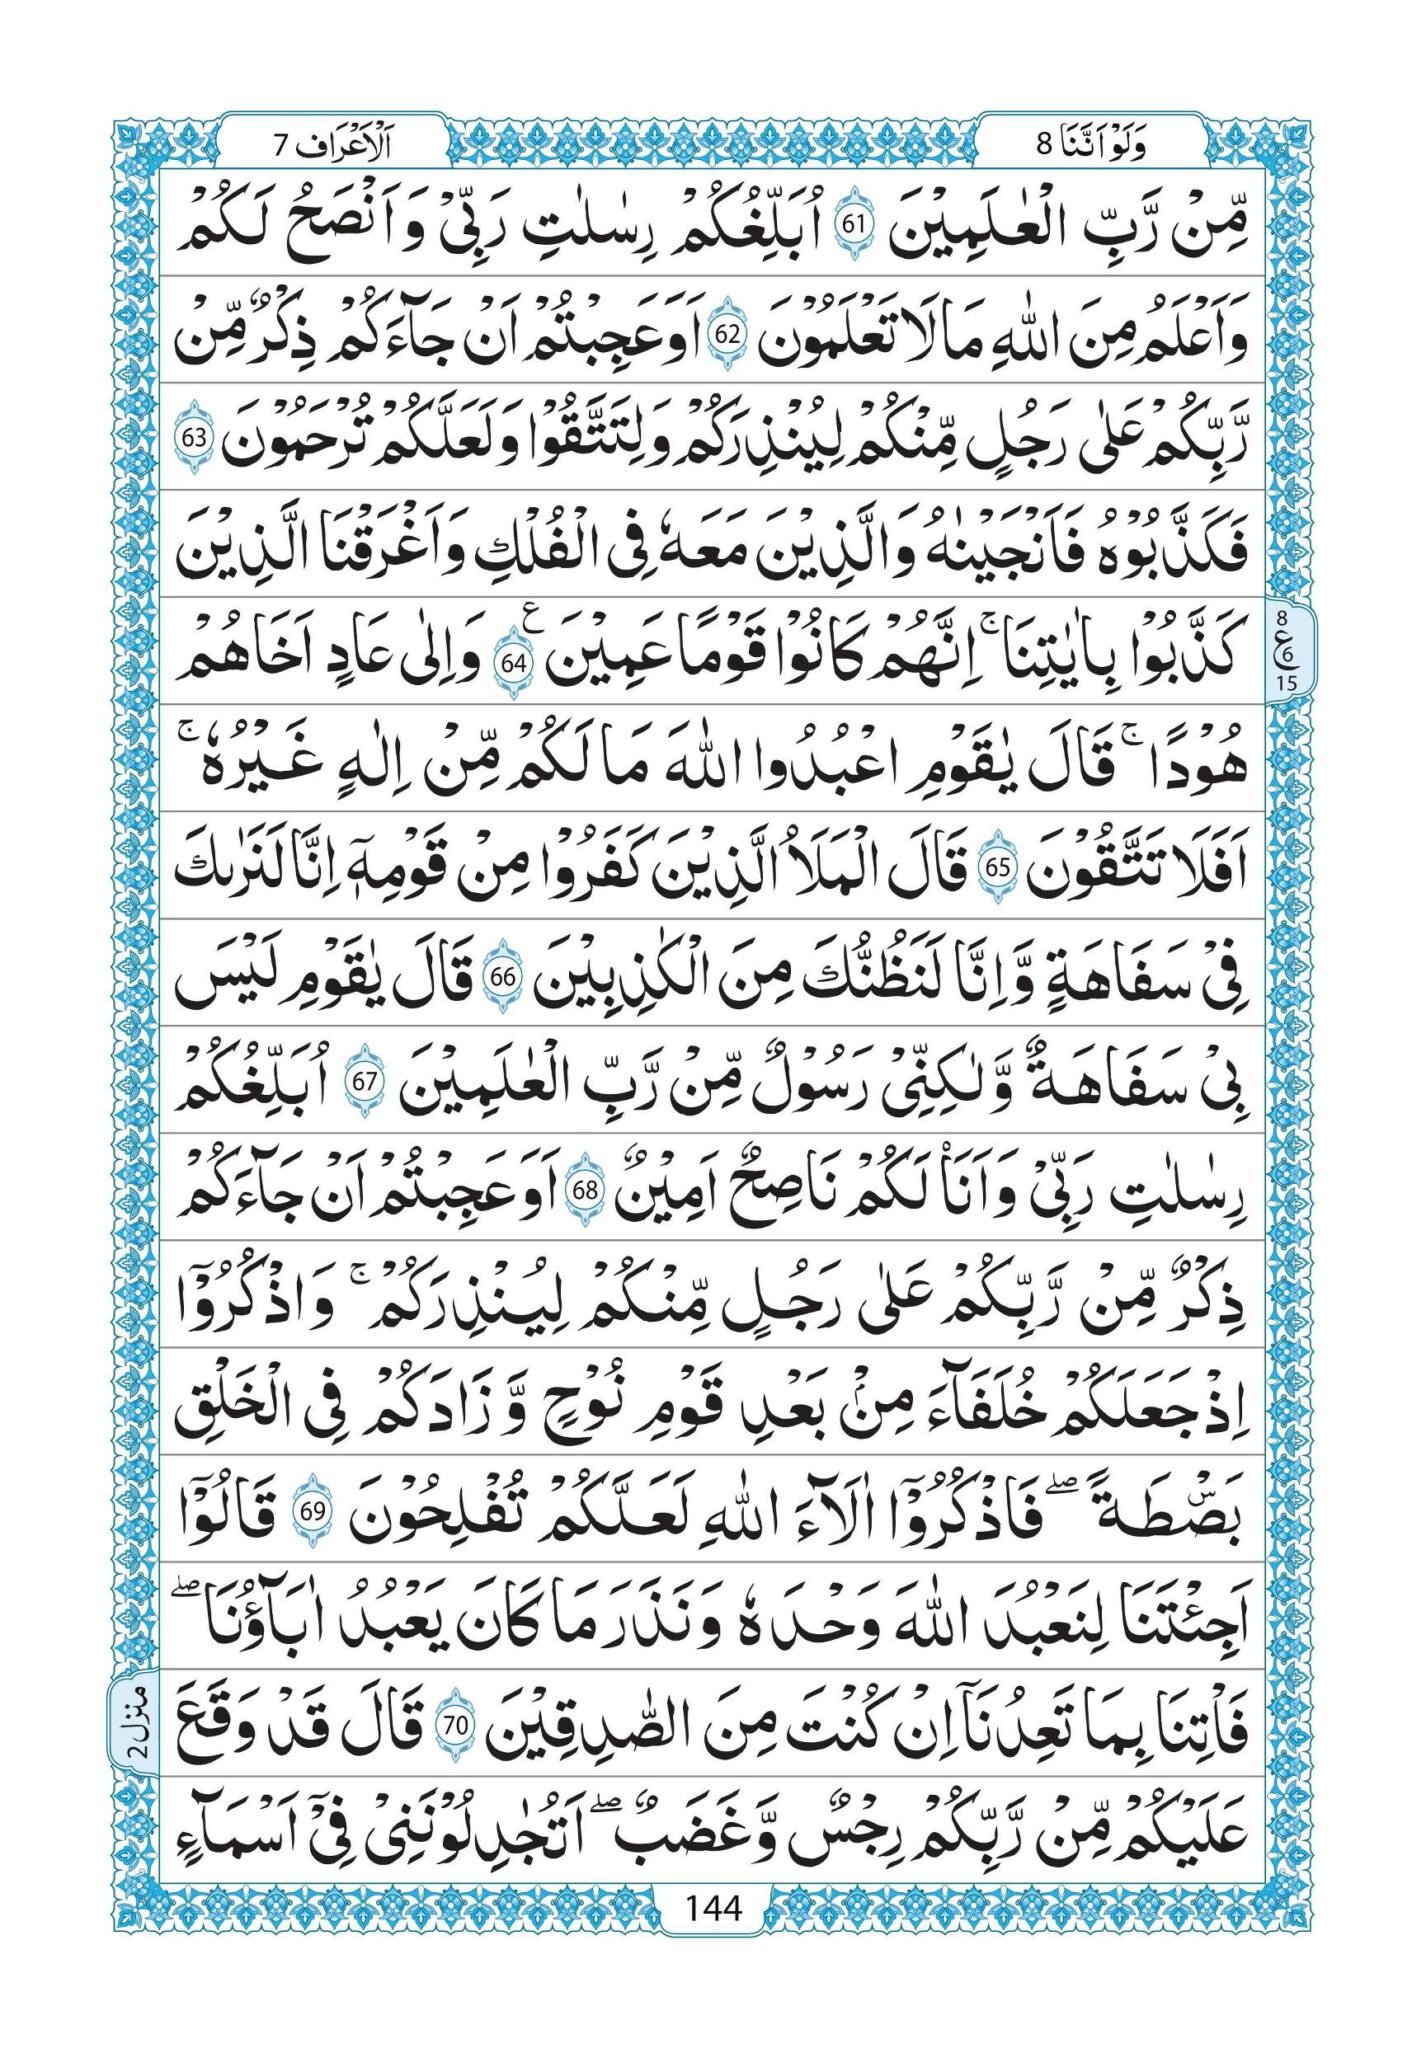 وَلَوْ اَنَّنَا 8
اَلْاَعْرَاف 7
مِّنْ رَّبِّ الْعٰلَمِيْنَ 61 اُبَلِّغُكُمْ رِسٰلٰتِ رَبِّيْ وَاَنْصَحُ لَكُمْ
وَاَعْلَمُ مِنَ اللّٰهِ مَا لَا تَعْلَمُوْنَ 62 اَوَعَجِبْتُمْ اَنْ جَآءَكُمْ ذِكْرٌ مِّنْ
رَّبِّكُمْ عَلٰى رَجُلٍ مِّنْكُمْ لِيُنْذِرَكُمْ وَلِتَتَّقُوْا وَلَعَلَّكُمْ تُرْحَمُوْنَ 63
فَكَذَّبُوْهُ فَاَنْجَيْنٰهُ وَالَّذِيْنَ مَعَهٗ فِى الْفُلْكِ وَاَغْرَقْنَا الَّذِيْنَ
كَذَّبُوْا بِاٰيٰتِنَا ۚ اِنَّهُمْ كَانُوْا قَوْمًا عَمِيْنَ 64 ع وَاِلٰى عَادٍ اَخَاهُمْ
8
ع
6
15
هُوْدًا ۚ قَالَ يٰقَوْمِ اعْبُدُوا اللّٰهَ مَا لَكُمْ مِّنْ اِلٰهٍ غَيْرُهٗ ۚ
اَفَلَا تَتَّقُوْنَ 65 قَالَ الْمَلَاُ الَّذِيْنَ كَفَرُوْا مِنْ قَوْمِهٖٓ اِنَّا لَنَرٰىكَ
فِيْ سَفَاهَةٍ وَّاِنَّا لَنَظُنُّكَ مِنَ الْكٰذِبِيْنَ 66 قَالَ يٰقَوْمِ لَيْسَ
بِيْ سَفَاهَةٌ وَّلٰكِنِّيْ رَسُوْلٌ مِّنْ رَّبِّ الْعٰلَمِيْنَ 67 اُبَلِّغُكُمْ
رِسٰلٰتِ رَبِّيْ وَاَنَا۠ لَكُمْ نَاصِحٌ اَمِيْنٌ 68 اَوَعَجِبْتُمْ اَنْ جَآءَكُمْ
ذِكْرٌ مِّنْ رَّبِّكُمْ عَلٰى رَجُلٍ مِّنْكُمْ لِيُنْذِرَكُمْ ۚ وَاذْكُرُوْٓا
اِذْ جَعَلَكُمْ خُلَفَآءَ مِنْۢ بَعْدِ قَوْمِ نُوْحٍ وَّزَادَكُمْ فِى الْخَلْقِ
بَصْۜطَةً ۖ فَاذْكُرُوْٓا اٰلَآءَ اللّٰهِ لَعَلَّكُمْ تُفْلِحُوْنَ 69 قَالُوْٓا
اَجِئْتَنَا لِنَعْبُدَ اللّٰهَ وَحْدَهٗ وَنَذَرَ مَا كَانَ يَعْبُدُ اٰبَآؤُنَا ۖ
فَاْتِنَا بِمَا تَعِدُنَآ اِنْ كُنْتَ مِنَ الصّٰدِقِيْنَ 70 قَالَ قَدْ وَقَعَ
منزل 2
عَلَيْكُمْ مِّنْ رَّبِّكُمْ رِجْسٌ وَّغَضَبٌ ۖ اَتُجٰدِلُوْنَنِيْ فِيْٓ اَسْمَآءٍ
144